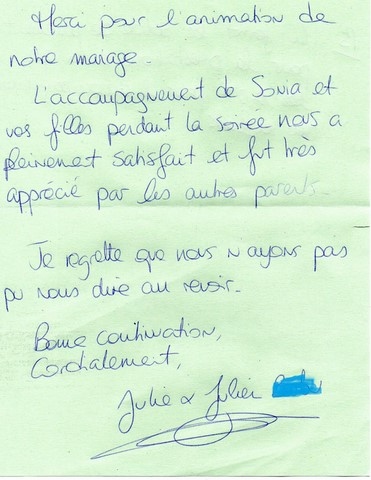 Merci pour l'animation de
notre mariage.
L'accompagnement de Sonia et
vos filles pendant la soirée nous a
pleinement satisfait et fut très
apprécié par les autres parents.
Je regrette que nous n'ayons pas
pu nous dire au revoir.
Bonne continuation,
Cordialement,
Julie & Julien